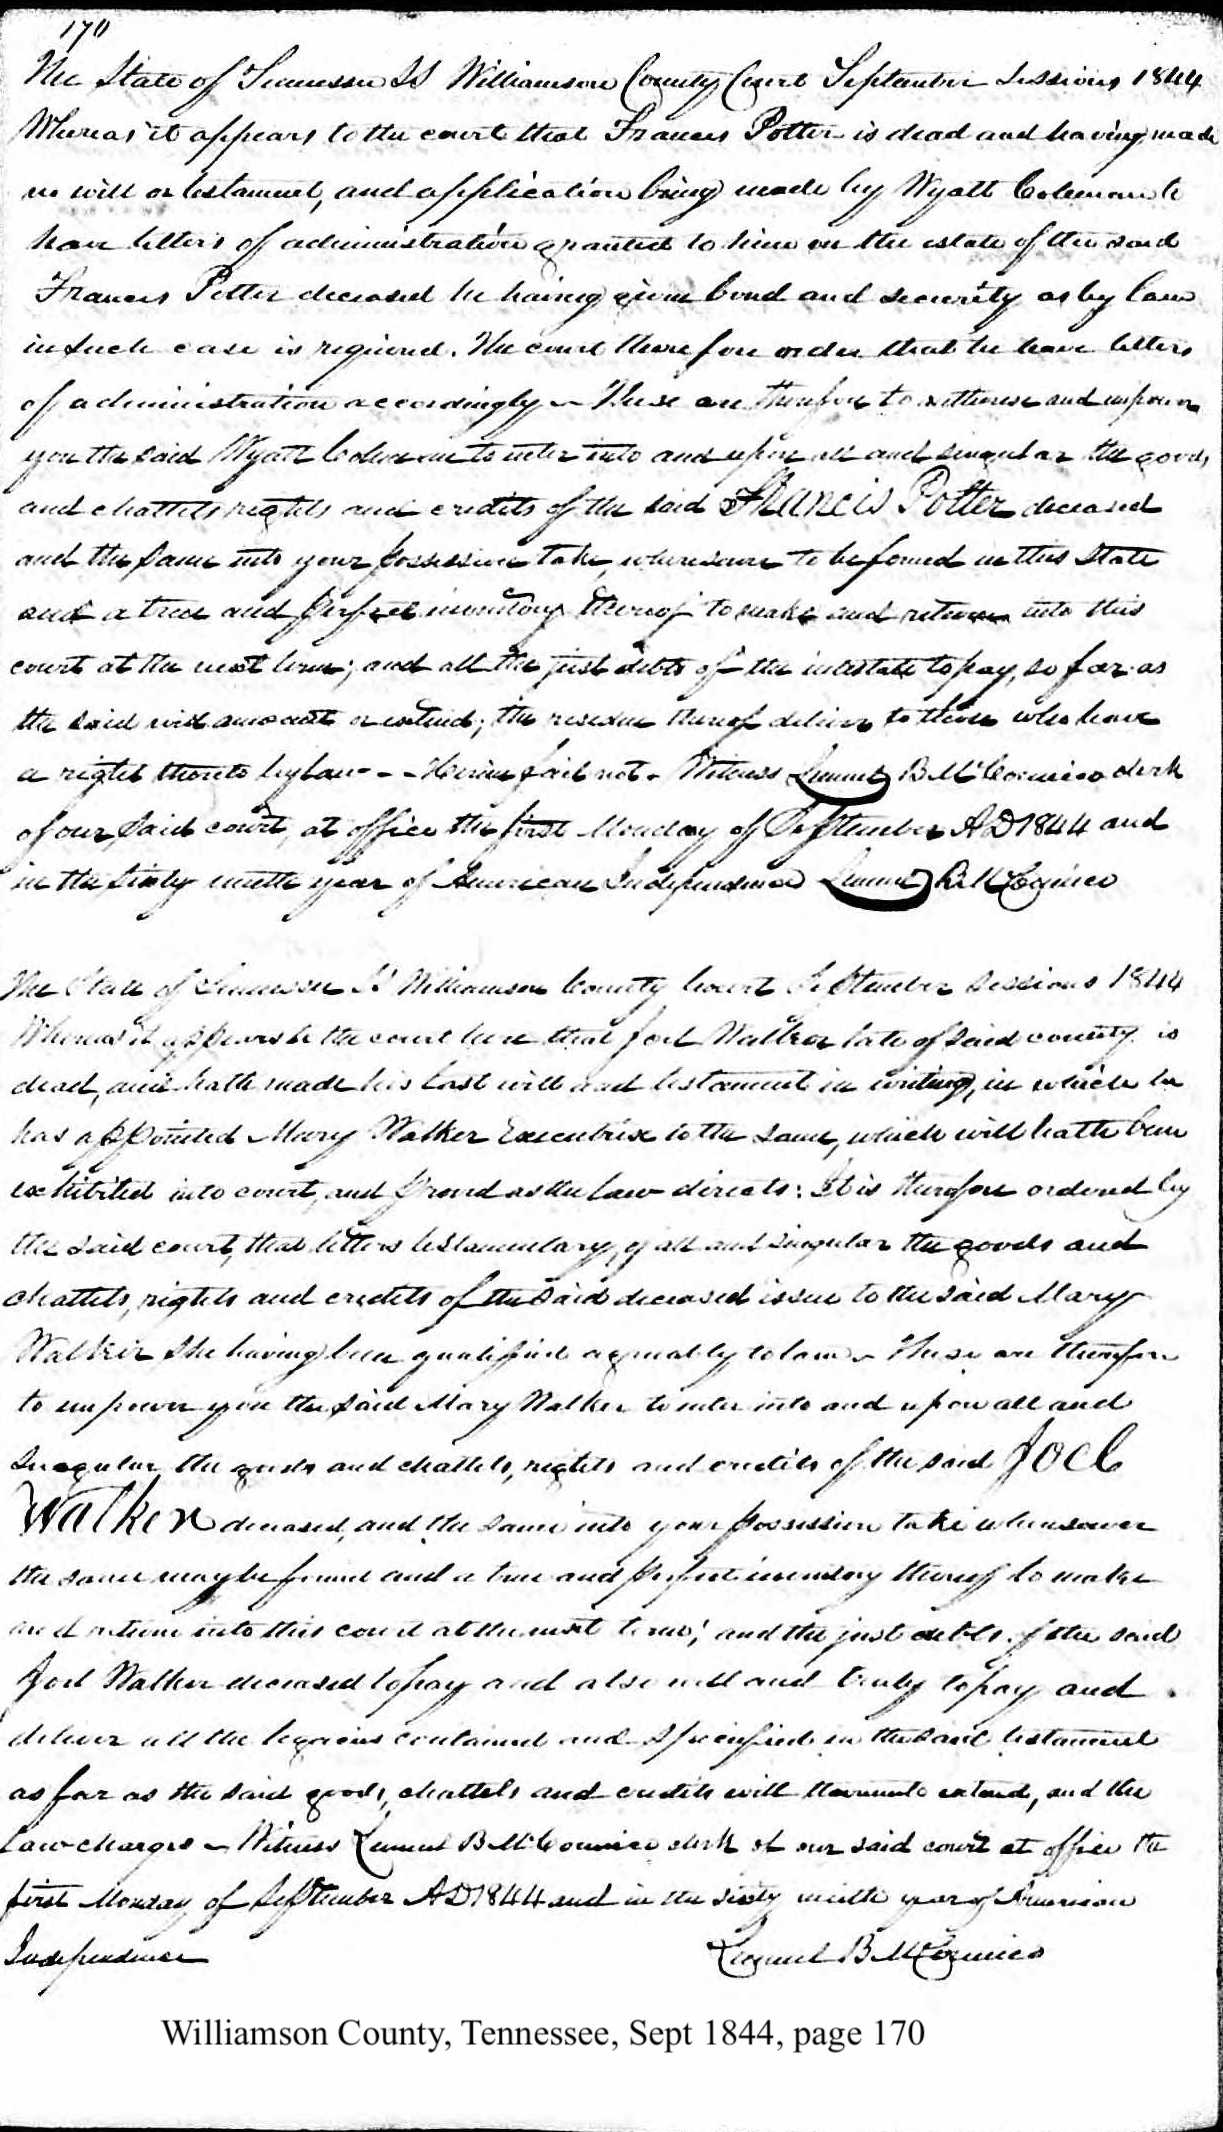 170
The State of Tennessee SS Williamson County Court September Sessions 1844
Whereas it appears to the court that Frances Potter is dead and having made
no will or testament, and application being made by Wyatt Coleman to
have letters of administration granted to him on the estate of the said
Frances Potter deceased he having given bond and security as by law
in such case is required. The court therefore order that he have letters
of administration accordingly ~ These are therefore to authorise and empower
you the said Wyatt Coleman to enter into and upon all and singular the goods
and chattels rights and credits of the said Francis Potter deceased
and the same into your possession take, wheresoever to be found in this State
and a true and perfect inventory thereof to make and return into this
court at the next term; and all the just debts of the intestate to pay, so far as
the said will amount or extend; the residue thereof deliver to those who have
a right thereto by law - - Herein fail not. Witness Lemuel B McConnico clerk
of our said court, at office the first Monday of September AD 1844 and
in the sixty ninth year of American Independence Lemuel B McConnico
The State of Tennessee SS Williamson County Court September Sessions 1844
Whereas it appears to the court here that Joel Walker late of said county is
dead, and hath made his last will and testament in writing, in which he
has appointed Mary Walker Executrix to the same, which will hath been
exhibited into court, and proved as the law directs: It is therefore ordered by
the said court, that letters testamentary, of all and singular the goods and
chattels, rights and credits of the said deceased issue to the said Mary
Walker she having been qualified agreeably to law ~ These are therefore
to empower you the said Mary Walker to enter into and upon all and
singular the goods and chattels, rights and credits of the said Joel
Walker deceased, and the same into your possession take wheresoever
the same may be found and a true and perfect inventory thereof to make
and return into this court at the next term; and the just debts of the said
Joel Walker deceased to pay and also well and truly to pay and
deliver all the legacies contained and specified in the said testament
as far as the said goods, chattels and credits will thereunto extend, and the
law charges ~ Witness Lemuel B McConnico clerk of our said court at office the
first Monday of September AD 1844 and in the sixty ninth year of American
Independence Lemuel B McConnico
Williamson County, Tennessee, Sept 1844, page 170